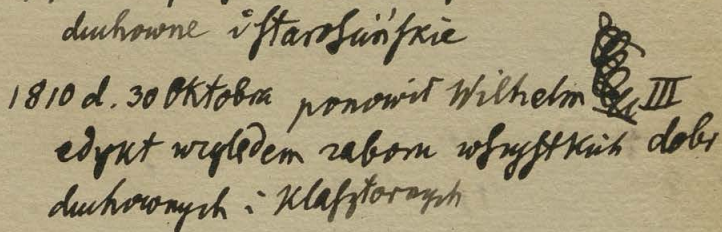 duchowne i starościńskie
1810 d. 30 Oktobra ponowił Wilhelm III
edykt względem zaboru wszystkich dobr
duchownych i klasztornych